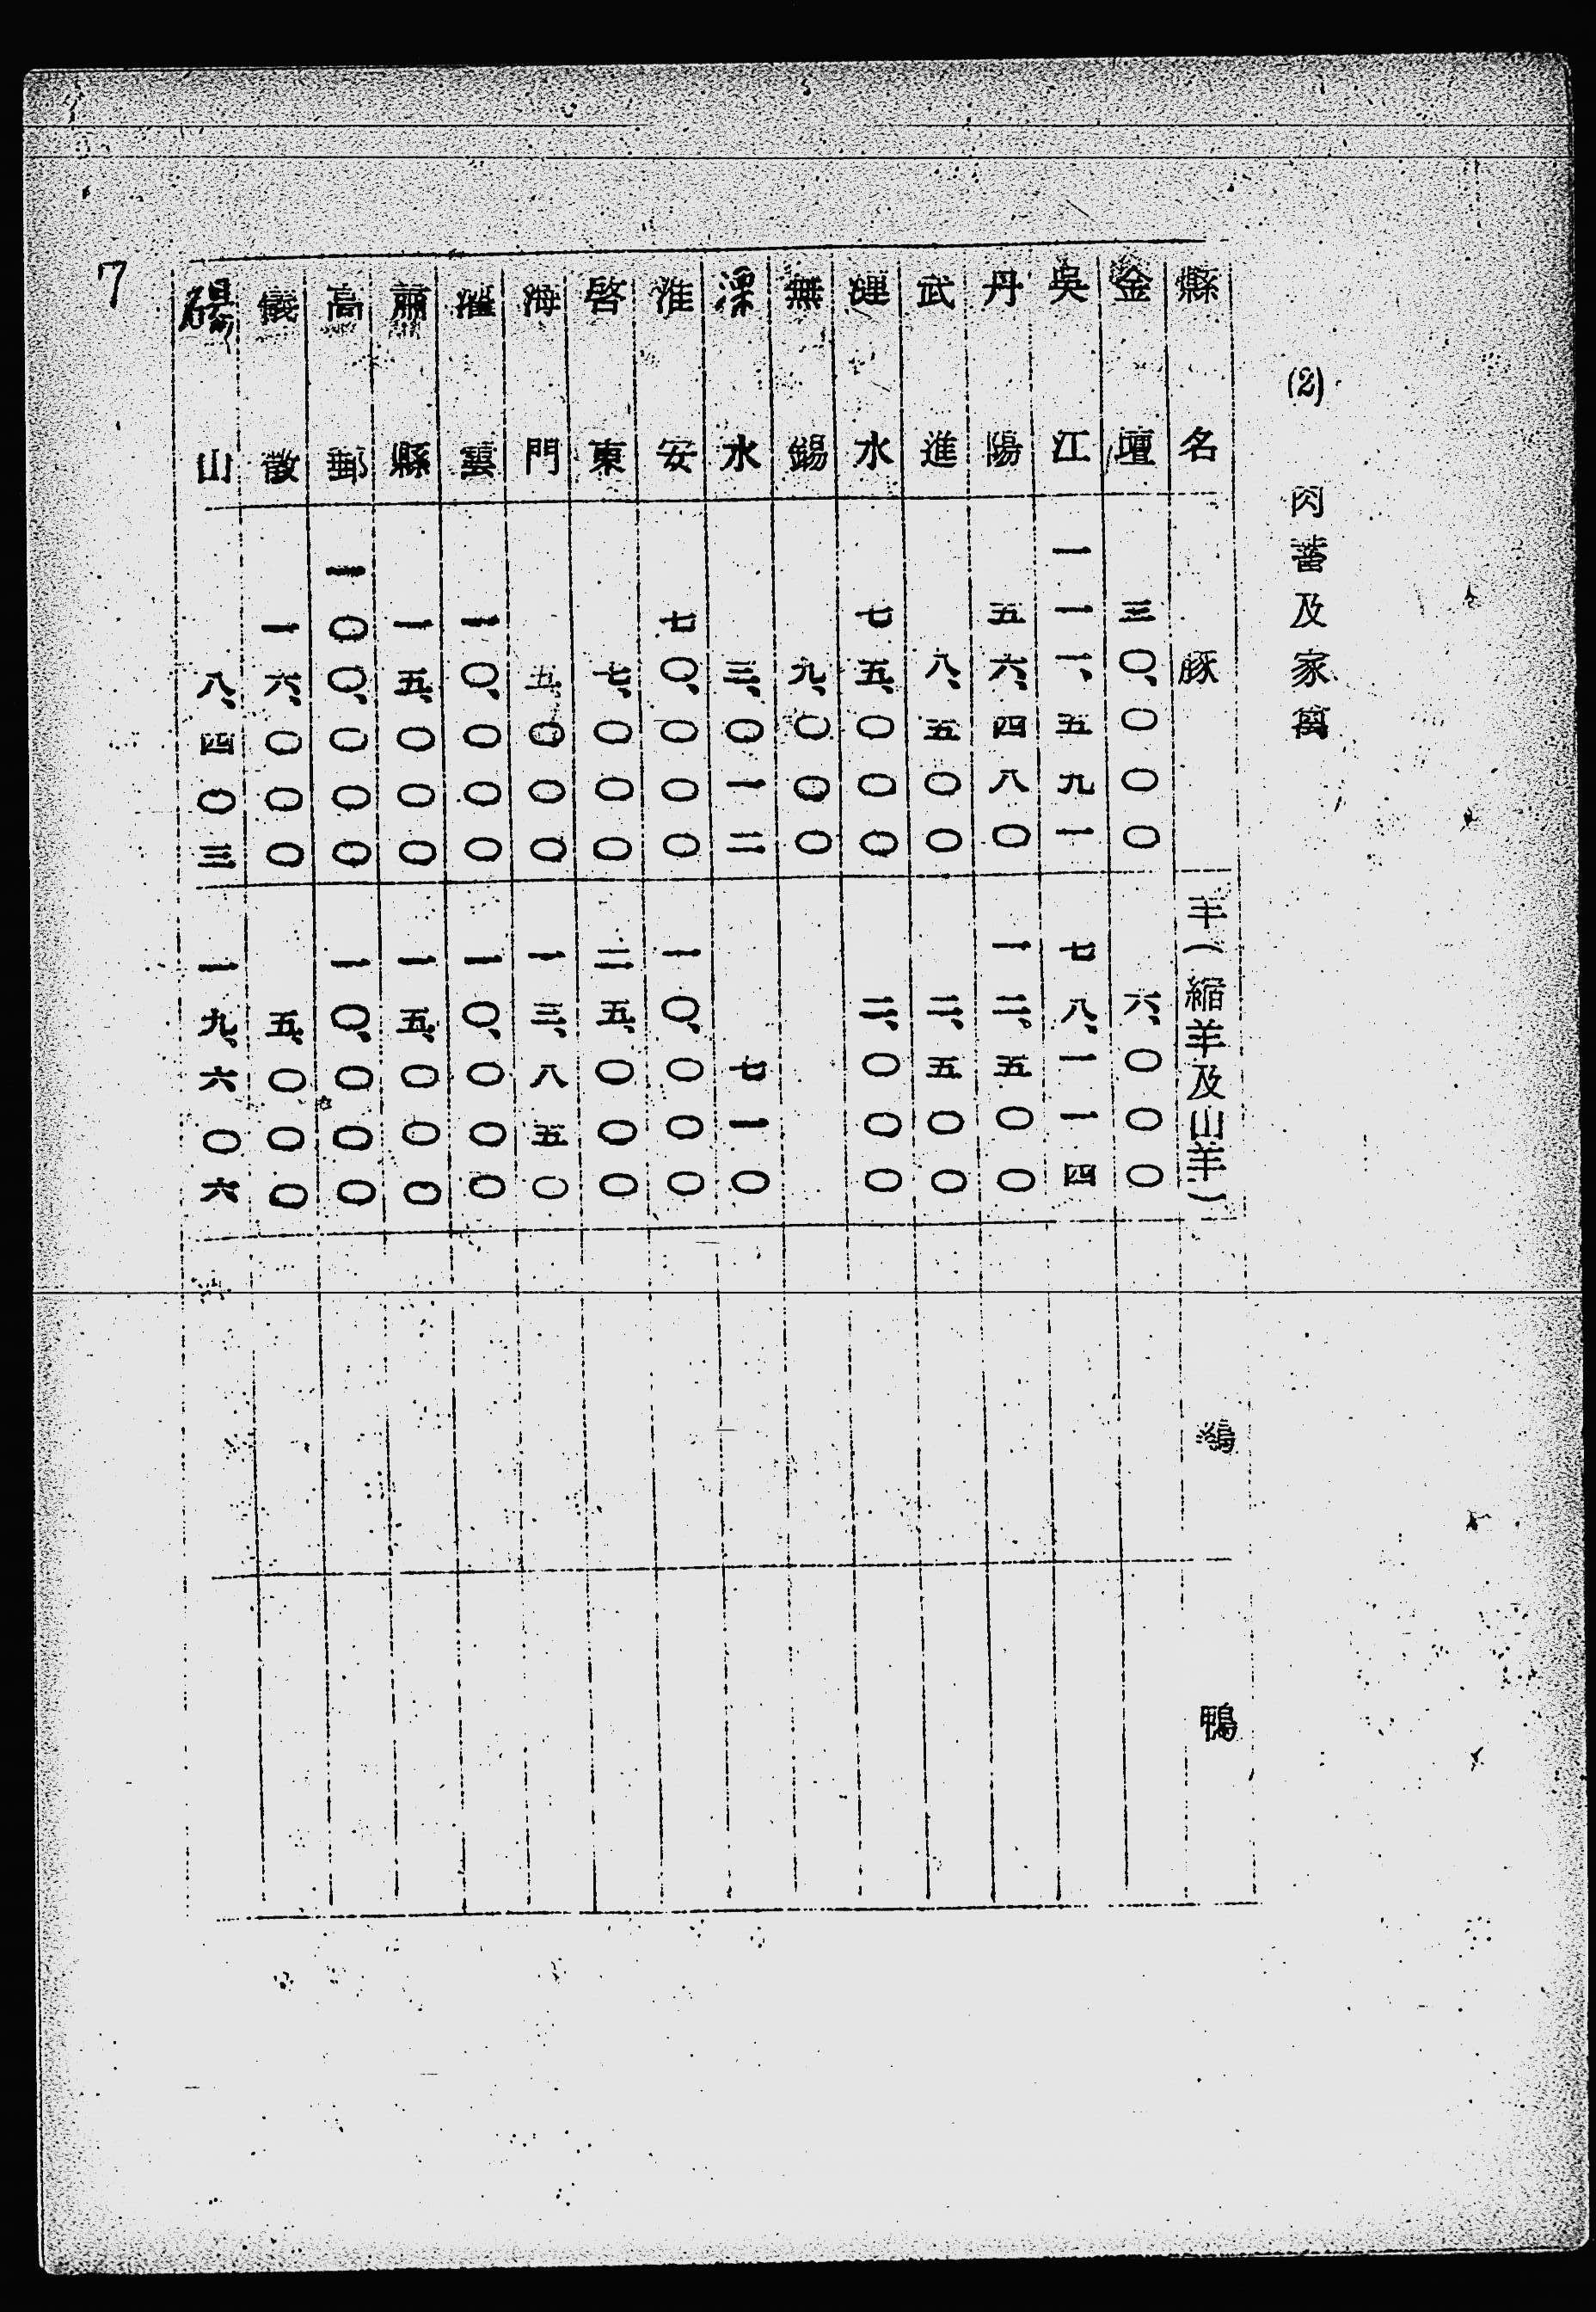 (2) 肉蓄及家禽
縣名 豚 羊(緬羊及山羊) 鷄 鴨
金壇 三〇、〇〇〇 六、〇〇〇
吳江 一一一、五九一 七八、一一四
丹陽 五六、四八〇 一二、五〇〇
武進 八、五〇〇 二、五〇〇
漣水 七五、〇〇〇 二、〇〇〇
無錫 九、〇〇〇
溧水 三、〇一二 七一〇
淮安 七〇、〇〇〇 一〇、〇〇〇
啓東 七、〇〇〇 二五、〇〇〇
海門 五、〇〇〇 一三、八五〇
灌雲 一〇、〇〇〇 一〇、〇〇〇
蕭縣 一五、〇〇〇 一五、〇〇〇
高郵 一〇〇、〇〇〇 一〇、〇〇〇
儀徵 一六、〇〇〇 五、〇〇〇
碭山 八、四〇三 一九、六〇六
7